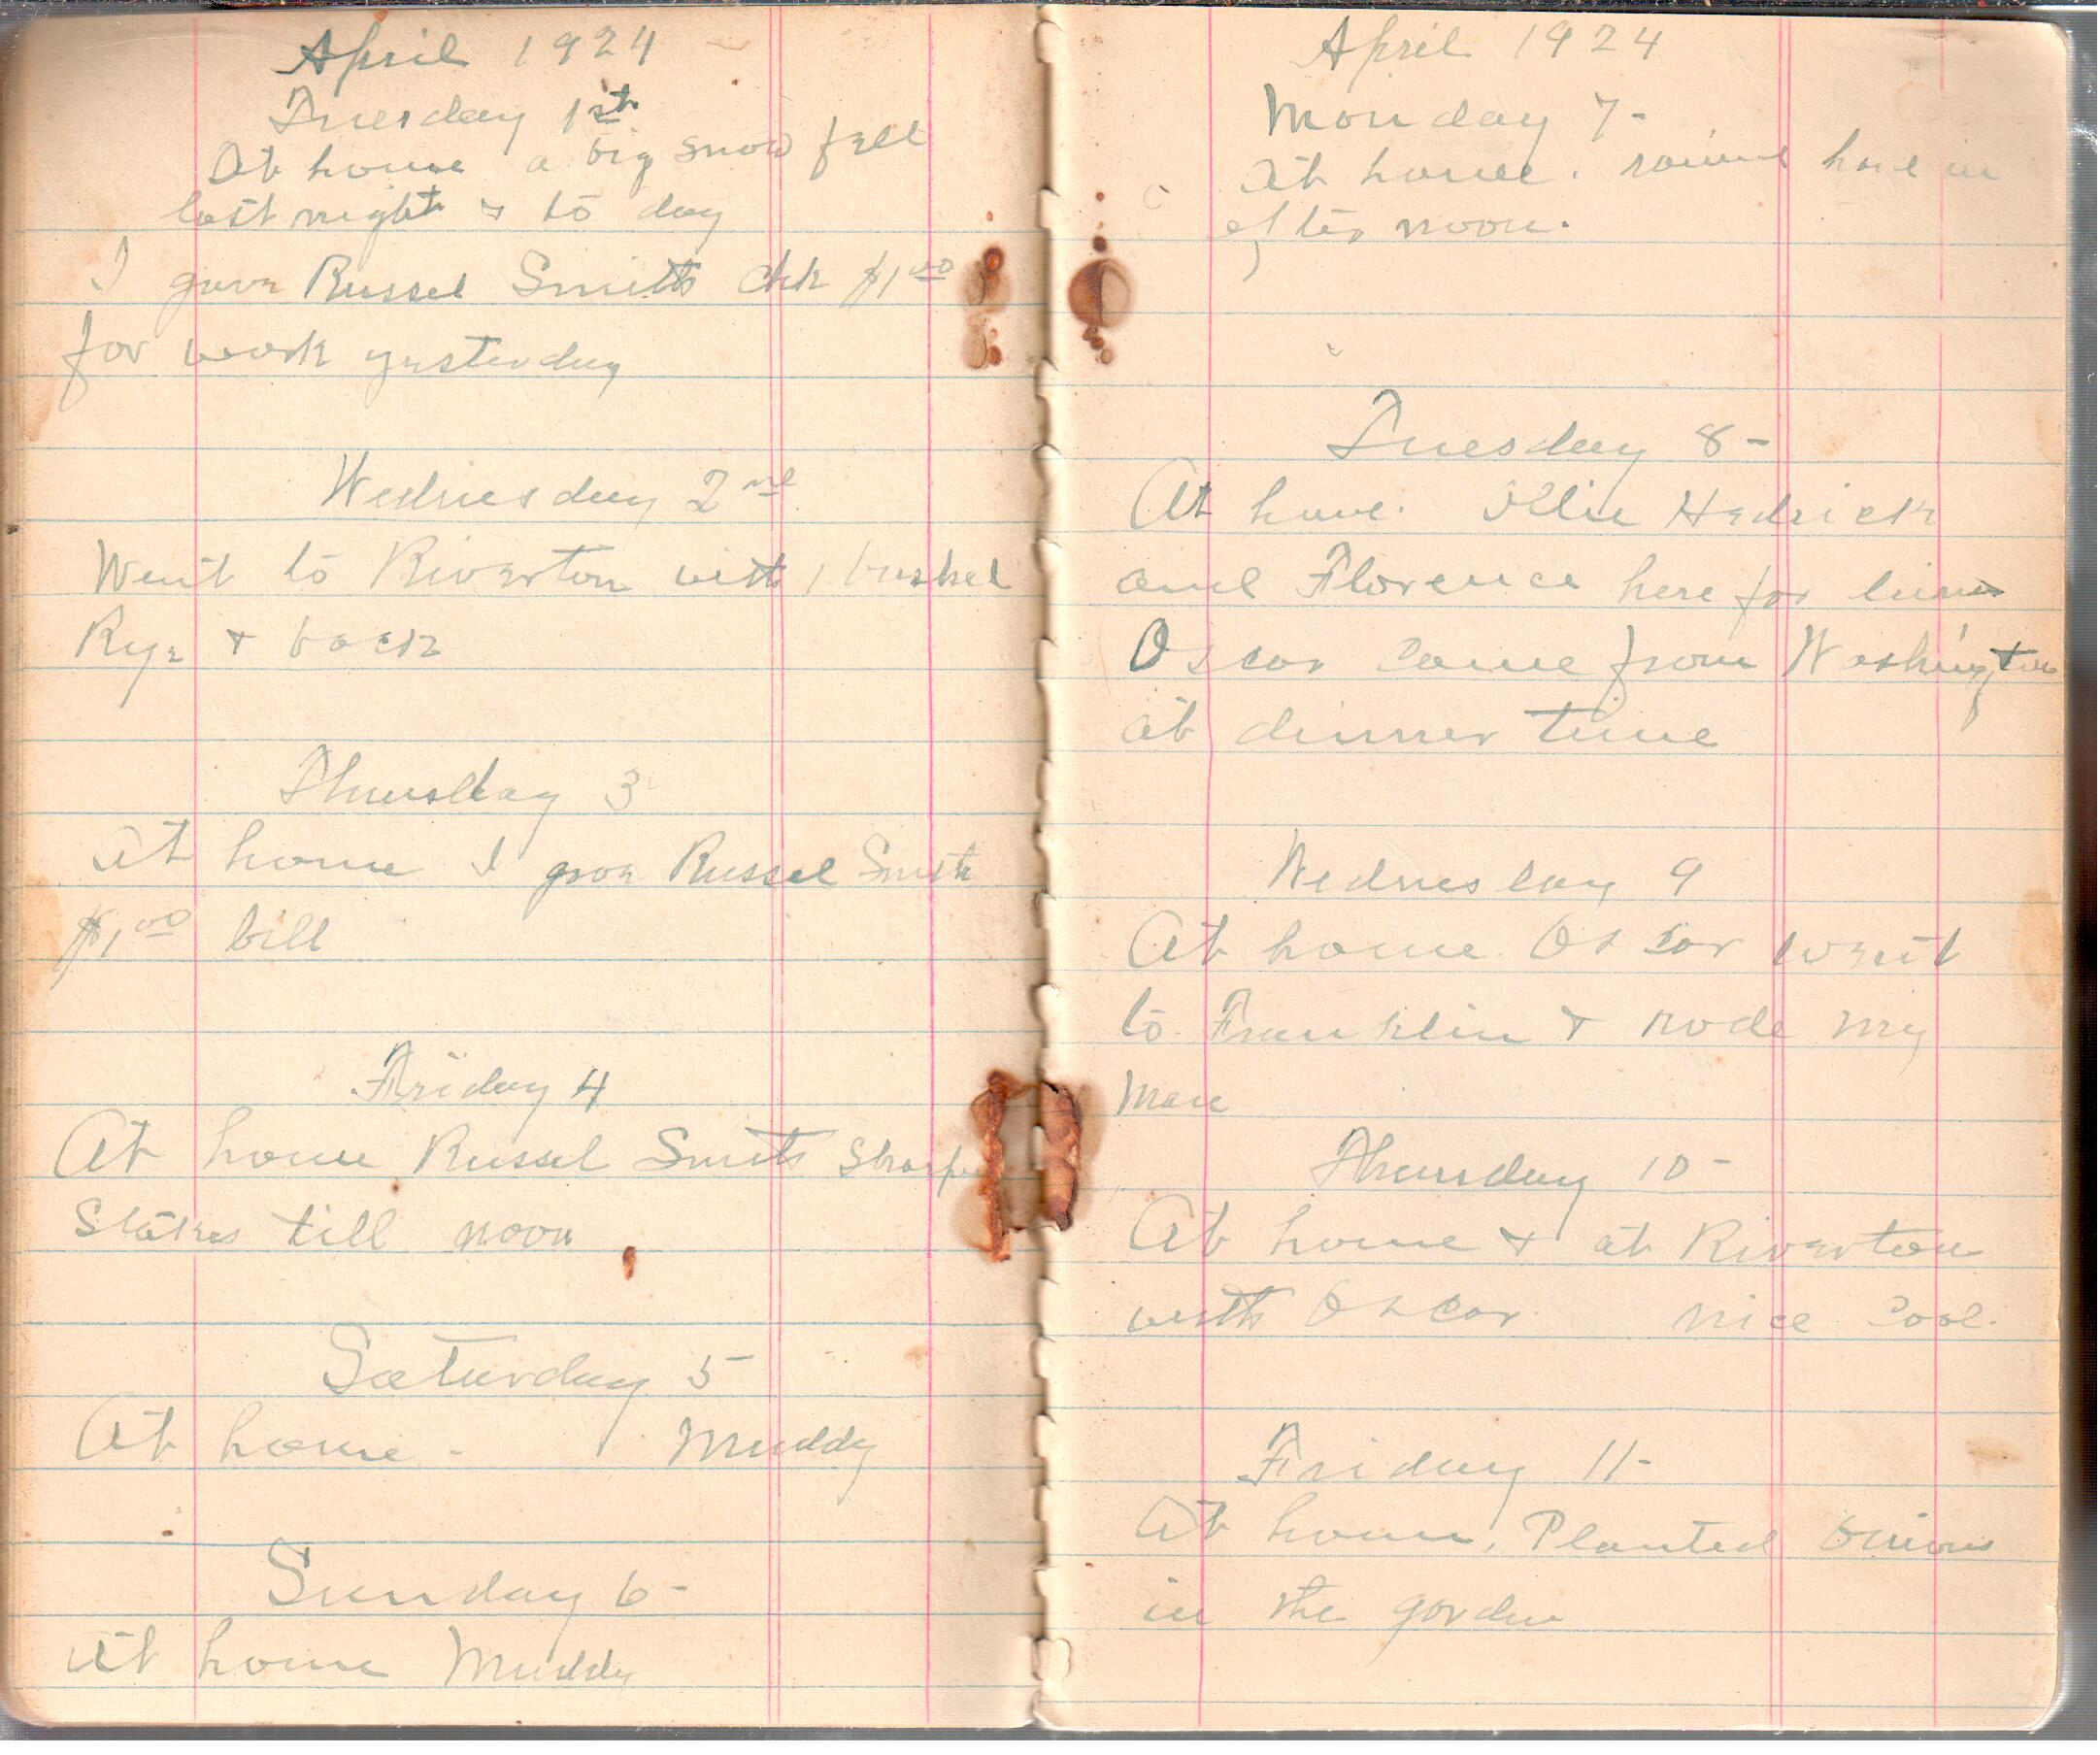 April 1924
Tuesday 1st
At home a big snow fell
last night & to day
I gave Russel Smith chk $1.00
for work yesterday
Wednesday 2nd
Went to Riverton with 1 bushel
Rye & back
Thursday 3
At home I gave Russel Smith
$1.00 bill
Friday 4
At home Russel Smith Sharp
Stakes till noon
Saturday 5
At home - Muddy
Sunday 6-
At home Muddy
April 1924
Monday 7-
At home. rained hard in
after noon.
Tuesday 8-
At home. Ollie Hedrick
and Florence here for
Oscar came from Washington
at dinner time
Wednesday 9
At home. Oscar went
to Franklin & rode my
mare
Thursday 10-
At home & at Riverton
with Oscar. nice cool.
Friday 11-
At home. Planted Onions
in the garden